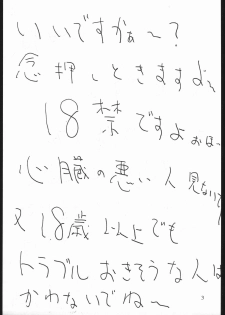 いいですかぁ～?
念押しときますよ〜
18禁ですよおほ〜
心臓の悪い人見ないで!
又18歳以上でも
トラブルおきそうな人は
かわないでね～
3